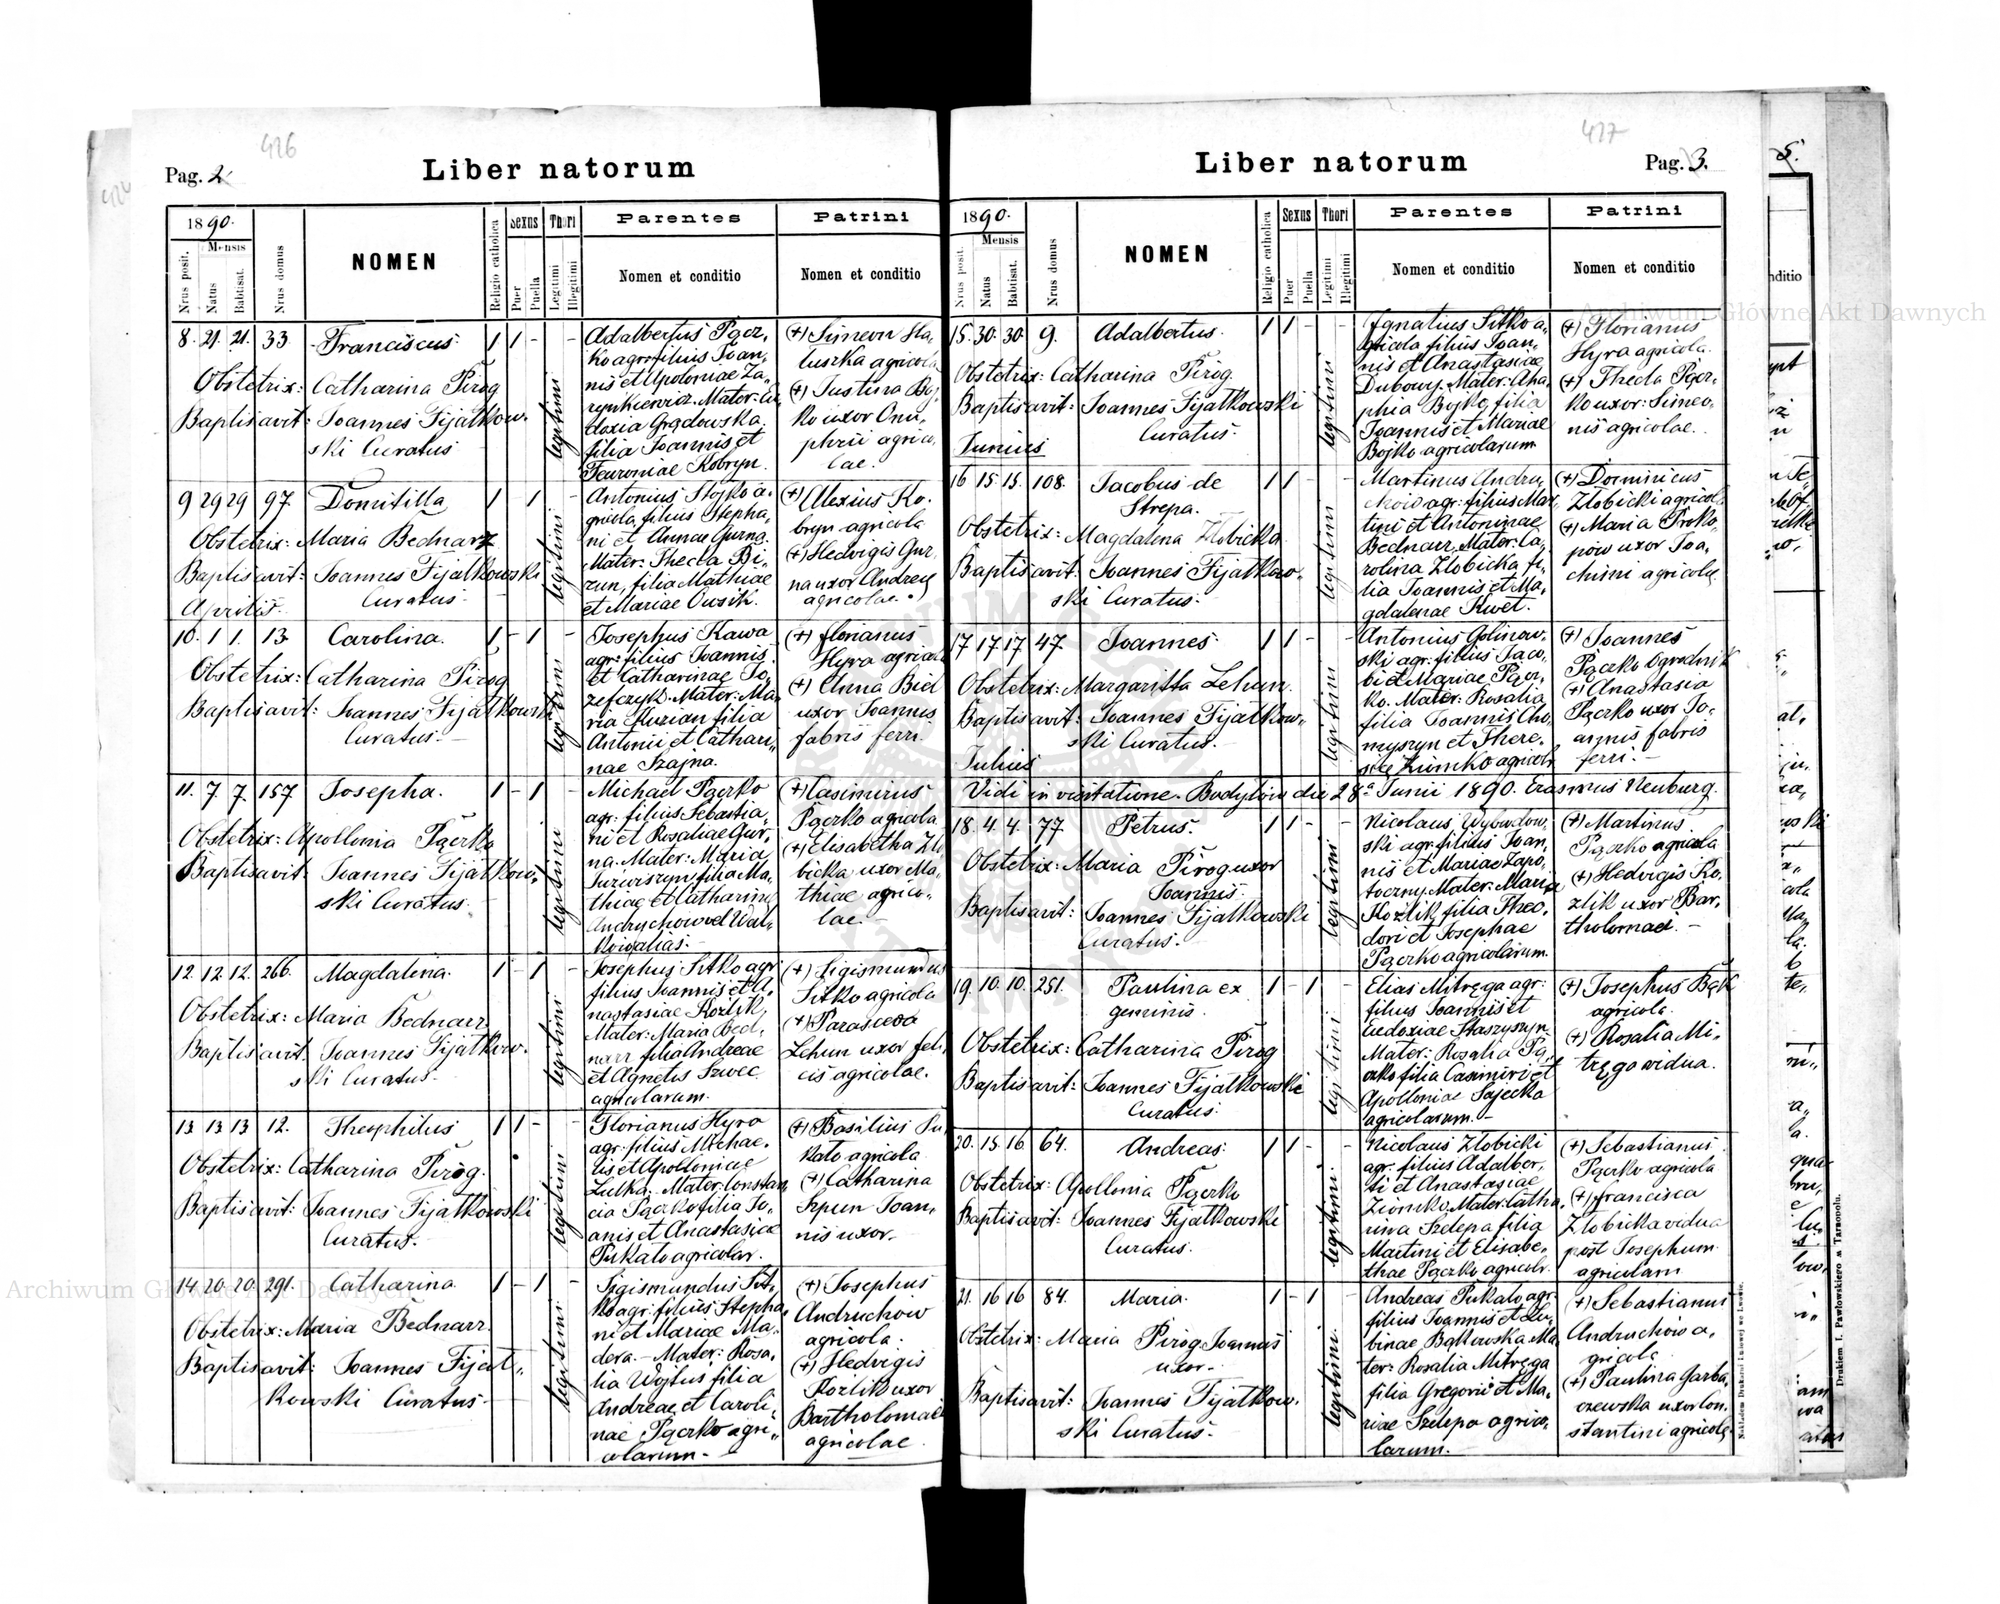 426
Pag. 2
Liber natorum
1890.
Mensis
Nrus posit.
Natus
Babtisat.
Nrus domus
NOMEN
Religio catholica
Sexus
Puer
Puella
Thori
Legitimi
Illegitimi
Parentes
Nomen et conditio
Patrini
Nomen et conditio
8. 21. 21. 33. Franciscus. 1 1 - -
Obstetrix: Catharina Pirog
Baptisavit: Joannes Fijałkow-
ski Curatus
legitimi
Adalbertus Pącz-
ko agr: filius Joan-
nis et Apoloniae Za-
doxia Grądowska
filia Joannis et
Fevroniae Kobryn.
(+) Simeon Ha-
luszka agricola
(+) Justina Boj-
ko uxor Onu-
phrii agrico-
lae.
9 29 29 97. Domitilla 1 - 1 -
Obstetrix: Maria Bednarz
Baptisavit: Joannes Fijałkowski
Curatus.
Aprilis.
legitimi
Antonius Stojko a-
gricola, filius Stepha-
ni et Annae Gurna.
Mater: Thecla Bi-
zun, filia Mathiae
et Mariae Owsik.
(+) Alexius Ko-
bryn agricola
(+) Hedvigis Gur-
na uxor Andreae
agricolae.
10. 1 1. 13. Carolina. 1 - 1 -
Obstetrix: Catharina Pirog
Baptisavit: Joannes Fijałkowski
Curatus.
legitimi
Josephus Kawa
agr: filius Joannis
et Catharinae Jo-
zefczyk. Mater: Ma-
ria Kuzian filia
Antonii et Cathari-
nae Szajna.
(+) Florianus
Hyra agricola
(+) Anna Bid
uxor Joannis
fabris ferri.
11. 7. 7. 157 Josepha. 1 - 1 -
Obstetrix: Apollonia Pączko
Baptisavit: Joannes Fijałkow-
ski Curatus.
legitimi
Michael Pączko
agr. filius Sebastia-
ni et Rosaliae Gur-
na. Mater: Maria
filia Ma-
thiae et Catharinae
(+) Casimirus
Pączko agricola
(+) Elisabetha Zło-
bicka uxor Ma-
thiae agrico-
lae.
12. 12. 12. 266. Magdalena. 1 - 1 -
Obstetrix: Maria Bednarz
Baptisavit: Joannes Fijałkow-
ski Curatus.
legitimi
Josephus Sitko agr.
filius Joannis et A-
nastasiae Kozlik,
Mater: Maria Bed-
narz filia Andreae
et Agnetis Szwec
agricolarum.
(+) Sigismundus
Sitko agricola
(+) Parasceva
Lehun uxor Feli-
cis agricolae.
13 13 13 12. Theophilus 1 1 -
Obstetrix: Catharina Pirog.
Baptisavit: Joannes Fijałkowski
Curatus.
legitimi
Florianus Hyra
agr. filius Michae-
lis et Apolloniae
Lulka. Mater: Constan-
cia Pączko filia Jo-
anis et Anastasiae
Pukato agricolar.
(+) Basilius Pu-
kato agricola
(+) Catharina
Szpun Joan-
nis uxor.
14. 20. 20. 291. Catharina 1 - 1 -
Obstetrix: Maria Bednarz.
Baptisavit: Joannes Fijał-
kowski Curatus
legitimi
Sigismundus Sit-
ko agr: filius Stepha-
ni et Mariae Ma-
dera. Mater: Rosa-
lia Wojtus filia
Andreae et Caroli-
nae Pączko agri-
colarum.
(+) Josephus
Andruchów
agricola.
(+) Hedvigis
Kozlik uxor
Bartholomaei
agricolae.
427
Liber natorum
Pag. 3.
1890.
Mensis
Nrus posit.
Natus
Babtisat.
Nrus domus
NOMEN
Religio catholica
Sexus
Puer
Puella
Thori
Legitimi
Illegitimi
Parentes
Nomen et conditio
Patrini
Nomen et conditio
15. 30. 30. 9. Adalbertus. 1 1 - -
Obstetrix: Catharina Pirog
Baptisavit: Joannes Fijałkowski
Curatus.
Junius
legitimi
Ignatius Sitko a-
gricola filius Joan-
nis et Anastasiae
Dubowy. Mater: Aha-
phia Bojko, filia
Joannis et Mariae
Bojko agricolarum
(+) Florianus
Hyra agricola.
(+) Thecla Pącz-
ko uxor Simeo-
nis agricolae.
16 15 15. 108. Jacobus de 1 1 - -
Strepa.
Obstetrix: Magdalena Złobicka
Baptisavit: Joannes Fijałkow-
ski Curatus.
legitimi
Martinus Andru-
chow agr: filius Mar-
tini et Antoninae
Bednarz, Mater: Ca-
rolina Złobicka fi-
lia Joannis et Ma-
gdalenae Kwet.
(+) Dominicus
Złobicki agricola
(+) Maria Proko-
pów uxor Joa-
chimi agricolae
17 17 17 47 Joannes. 1 1 - -
Obstetrix: Margaritta Lehun.
Baptisavit: Joannes Fijałkow-
ski Curatus.
Julius
legitimi
Antonius Golinow-
ski agr: filius Jaco-
bi et Mariae Pącz-
ko. Mater: Rosalia
filia Joannis Cho-
myszyn et There-
siae Ziomko agricol.
(+) Joannes
Pączko ogrodnik
(+) Anastasia
Pączko uxor Jo-
annis fabris
ferri.
Vidi in visitatione. Budyłów die 28ª Junii 1890. Erasmus Neuburg.
18. 4. 4. 77 Petrus. 1 1 - -
Obstetrix: Maria Pirog uxor
Joannis.
Baptisavit: Joannes Fijałkowski
Curatus.
legitimi
Nicolaus Wybudow-
ski agr. filius Joan-
nis et Mariae Zapo-
toczny. Mater: Maria
Kozlik filia Theo-
dori et Josephae
Pączko agricolarum.
(+) Martinus
Pączko agricola
(+) Hedvigis Ko-
zlik uxor Bar-
tholomaei.
19. 10. 10. 251. Paulina ex 1 - 1 -
geminis.
Obstetrix: Catharina Pirog
Baptisavit: Joannes Fijałkowski
Curatus.
legitimi
Elias Mitręga agr:
filius Joannis et
Eudoxiae Staszyszyn
Mater: Rosalia Pą-
czko filia Casimiri et
Apolloniae Sajecka
agricolarum.
(+) Josephus Bąk
agricola.
(+) Rosalia Mi-
tręga vidua.
20. 15 16 64. Andreas. 1 1 - -
Obstetrix: Apollonia Pączko
Baptisavit: Joannes Fijałkowski
Curatus.
legitimi
Nicolaus Złobicki
agr. filius Adalber-
ti et Anastasiae
Ziomko, Mater: Catha-
rina Szelepa filia
Martini et Elisabe-
thae Pączko agricolr.
(+) Sebastianus
Pączko agricola
(+) Francisca
Złobicka vidua
post Josephum
agricolam
21. 16 16 84. Maria. 1 - 1 -
Obstetrix: Maria Pirog Joannis
uxor.
Baptisavit: Joannes Fijałkow-
ski Curatus.
legitimi
Andreas Pukato agr.
filius Joannis et Lu-
binae Bąkowska Ma-
ter: Rosalia Mitręga
filia Gregorii et Ma-
riae Szelepa agrico-
larum.
(+) Sebastianus
Andruchów a-
gricola
(+) Paulina Garba-
czewska uxor Con-
stantini agricolae
Nakładem Drukarni Ludowej we Lwowie.
5.
nditio
Drukiem I. Pawłowskiego w Tarnopolu.
Archiwum Główne Akt Dawnych
Archiwum Główne Akt Dawnych